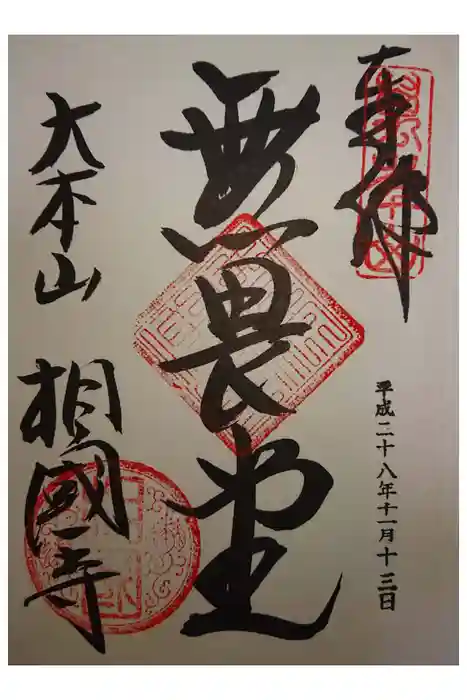 奉拝
平成二十八年十一月十三日
無畏堂
大本山 相國寺